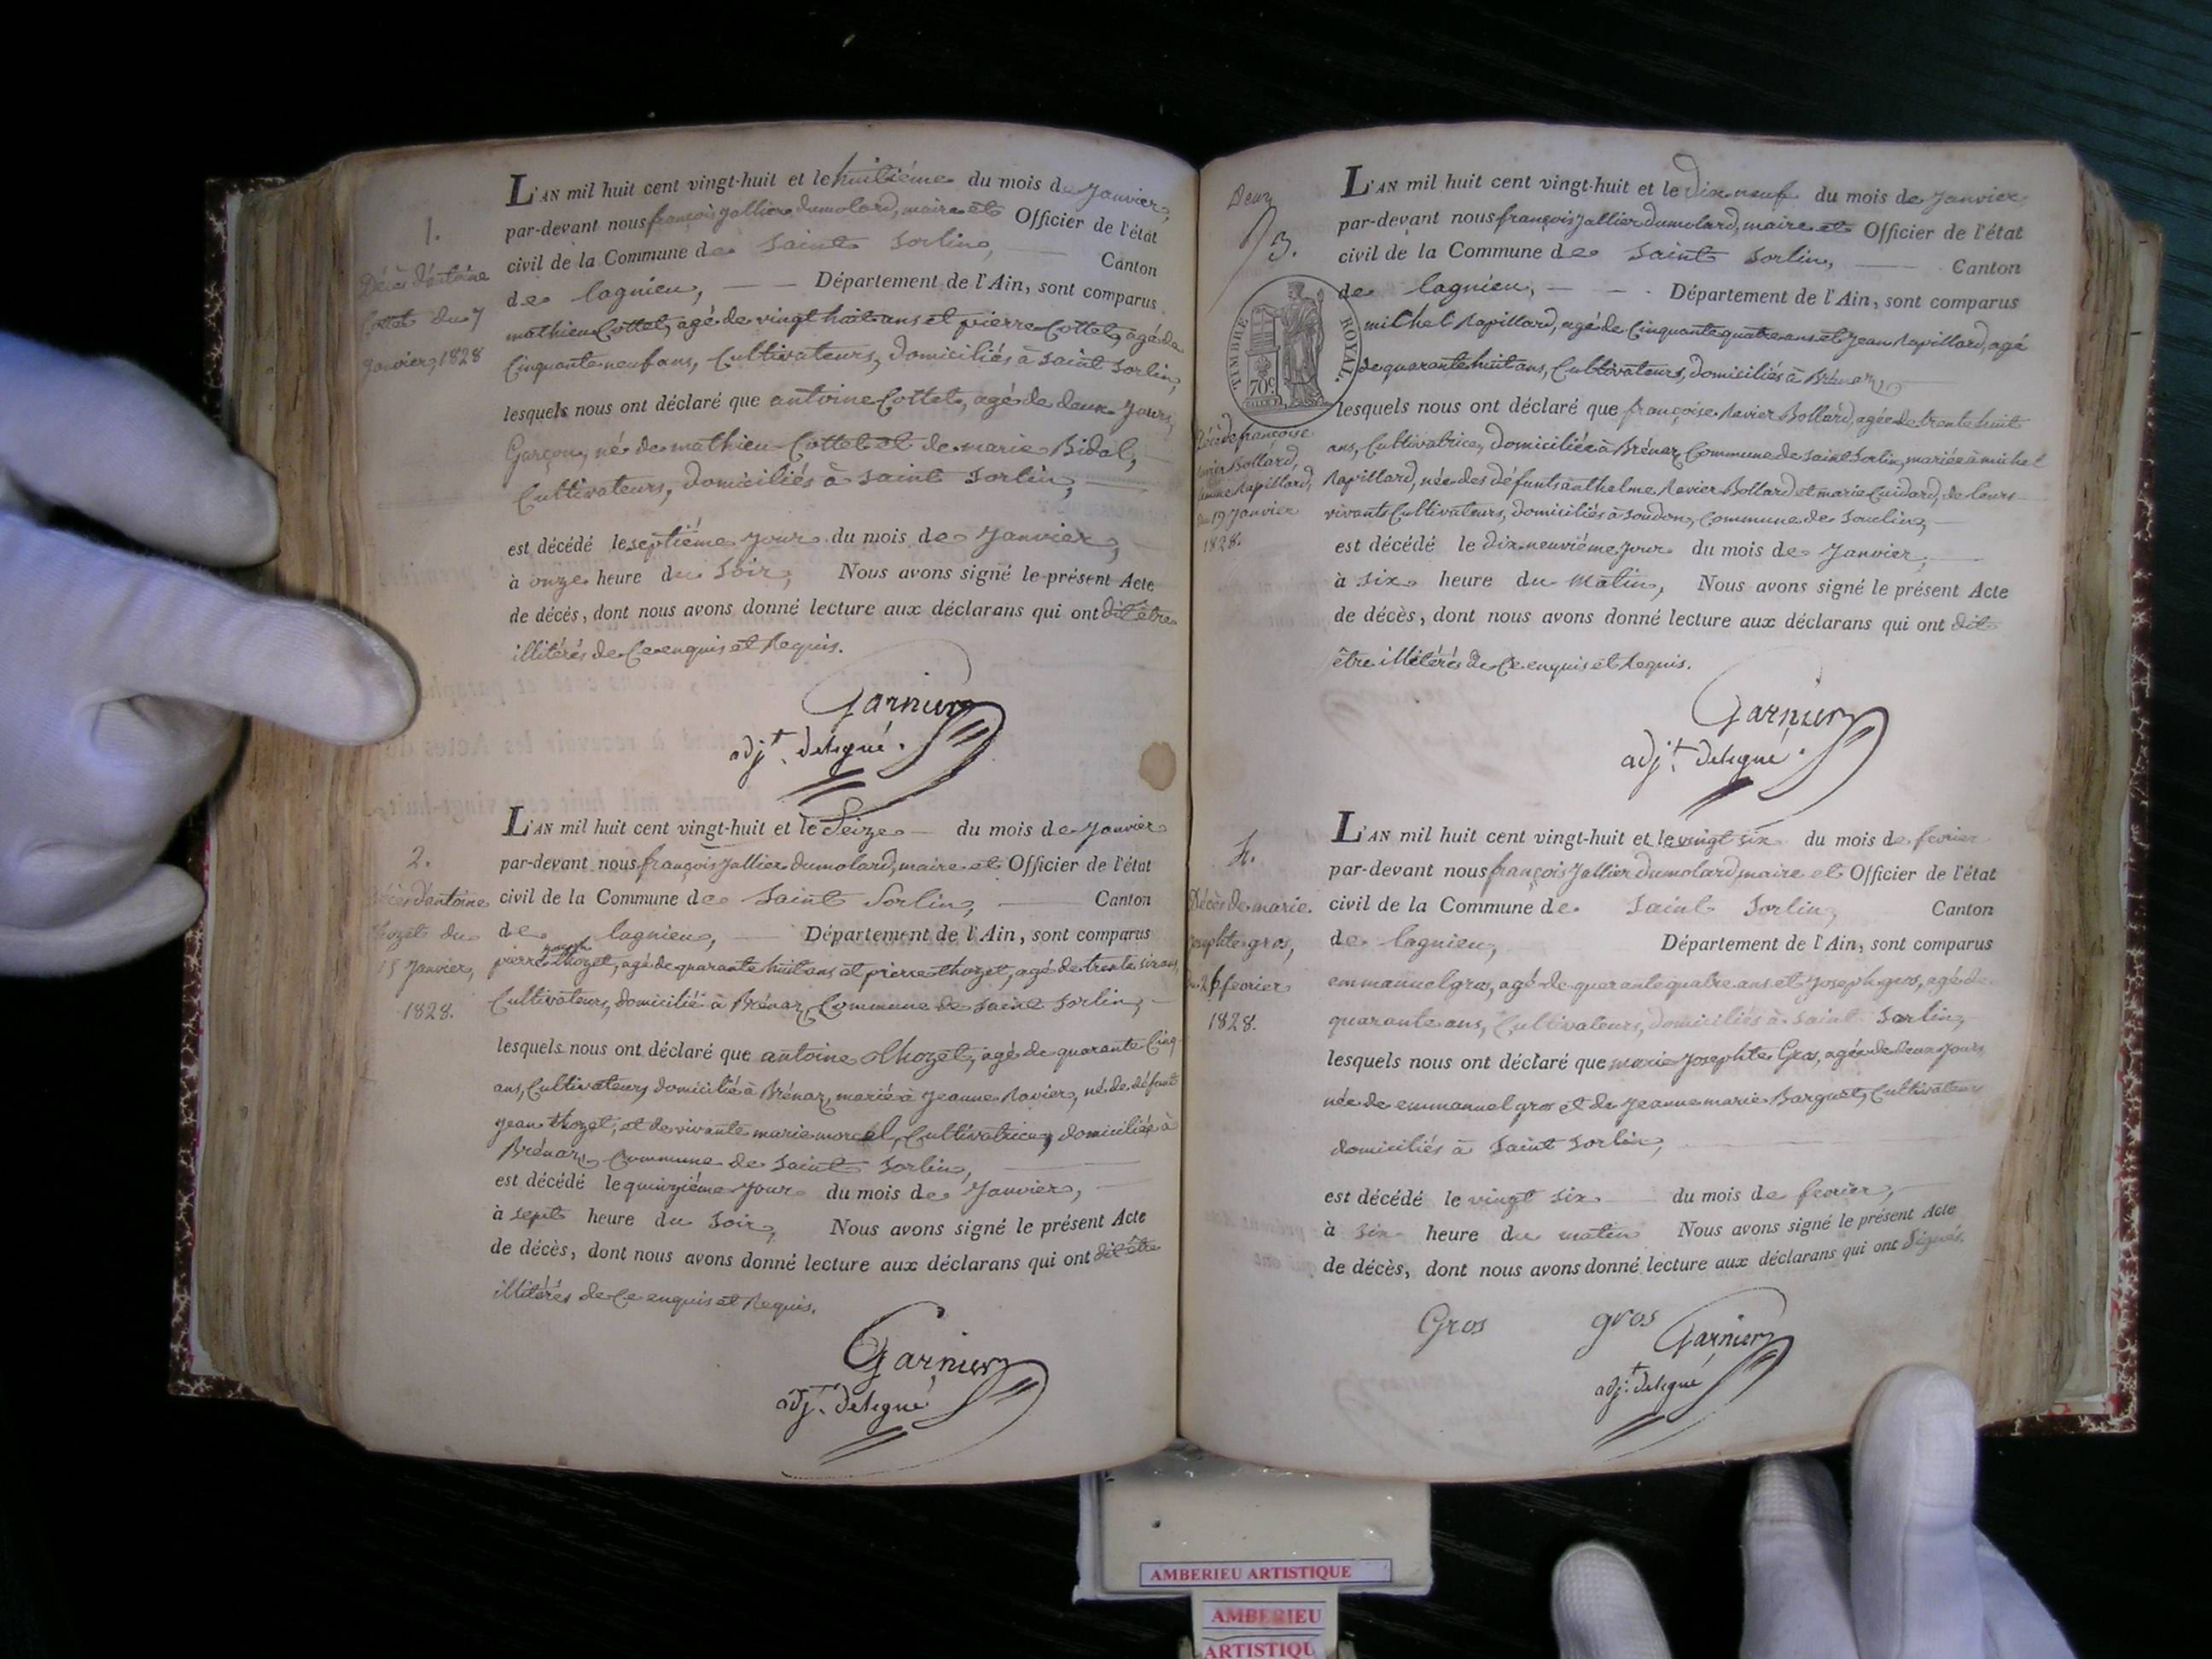 1.
Décès d'antoine
Cottet du 7
Janvier, 1828
L'AN mil huit cent vingt-huit et le huitième du mois de Janvier,
par-devant nous françois Jallier dumolard, maire et Officier de l'état
civil de la Commune de Saint Sorlin, Canton
de lagnieu, Département de l'Ain, sont comparus
mathieu Cottet, agé de vingt huit ans et pierre Cottet, agé de
Cinquante neuf ans, Cultivateurs, domiciliés à Saint Sorlin,
lesquels nous ont déclaré que antoine Cottet, agé de deux Jours,
Garçon, né de mathieu Cottet et de marie Bidal,
Cultivateurs, domiciliés à Saint Sorlin,
est décédé le septiéme Jour du mois de Janvier,
à onze heure du Soir, Nous avons signé le présent Acte
de décés, dont nous avons donné lecture aux déclarans qui ont dit être
illitérés de Ce enquis et Requis.
Garnier
adj.t delegué.
2.
Décès d'antoine
thozet du
15 Janvier,
1828.
L'AN mil huit cent vingt-huit et le Seize du mois de Janvier
par-devant nous françois Jallier dumolard, maire et Officier de l'état
civil de la Commune de Saint Sorlin, Canton
de lagnieu, Département de l'Ain, sont comparus
joseph
pierre thozet, agé de quarante huit ans et pierre thozet, agé de trente six ans,
Cultivateurs, domicilié à Brénaz, Commune de Saint Sorlin,
lesquels nous ont déclaré que antoine thozet, agé de quarante Cinq
ans, Cultivateur, domicilié à Brénaz, marié à Jeanne Ravier, né de défunt
Jean thozet, et de vivante marie morel, Cultivatrice, domiciliée à
Brénaz, Commune de Saint Sorlin,
est décédé le quinziéme Jour du mois de Janvier,
à sept heure du Soir, Nous avons signé le présent Acte
de décès, dont nous avons donné lecture aux déclarans qui ont dit être
illitérés de Ce enquis et Requis.
Garnier
adj.t delegué
Deux
3.
TIMBRE ROYAL.
70c
Décès de françoise
Ravier Bollard,
femme Rapillard,
du 19 Janvier
1828.
L'AN mil huit cent vingt-huit et le Dix neuf du mois de Janvier
par-devant nous françois Jallier dumolard, maire et Officier de l'état
civil de la Commune de Saint Sorlin, Canton
de lagnieu, Département de l'Ain, sont comparus
michel Rapillard, agé de Cinquante quatre ans et Jean Rapillard, agé
de quarante huit ans, Cultivateurs, domiciliés à Brénaz,
lesquels nous ont déclaré que françoise Ravier Bollard, agée de trente huit
ans, Cultivatrice, domiciliée à Brénaz, Commune de Saint Sorlin, mariée à michel
Rapillard, née des défunts anthelme Ravier Bollard et marie Cuidard, de leurs
vivants Cultivateurs, domiciliés à Soudon, Commune de Souclin,
est décédé le dix neuvième jour du mois de Janvier,
à six heure du Matin, Nous avons signé le présent Acte
de décès, dont nous avons donné lecture aux déclarans qui ont dit
être illitérés de Ce enquis et Requis.
Garnier
adj.t delegué.
4.
Décès de marie
Josephte gros,
du 26 fevrier
1828.
L'AN mil huit cent vingt-huit et le vingt six du mois de fevrier
par-devant nous françois Jallier dumolard, maire et Officier de l'état
civil de la Commune de Saint Sorlin, Canton
de lagnieu, Département de l'Ain, sont comparus
emmanuel gros, agé de quarante quatre ans et Joseph gros, agé de
quarante ans, Cultivateurs, domiciliés à Saint Sorlin,
lesquels nous ont déclaré que marie Josephte Gros, agée de deux jours,
née de emmanuel gros et de Jeanne marie Barquet, Cultivateurs
domiciliés à Saint Sorlin,
est décédé le vingt six du mois de fevrier,
à six heure du matin Nous avons signé le présent Acte
de décès, dont nous avons donné lecture aux déclarans qui ont Signés.
Gros gros Garnier
adj.t delegué
AMBERIEU ARTISTIQUE
AMBERIEU
ARTISTIQU